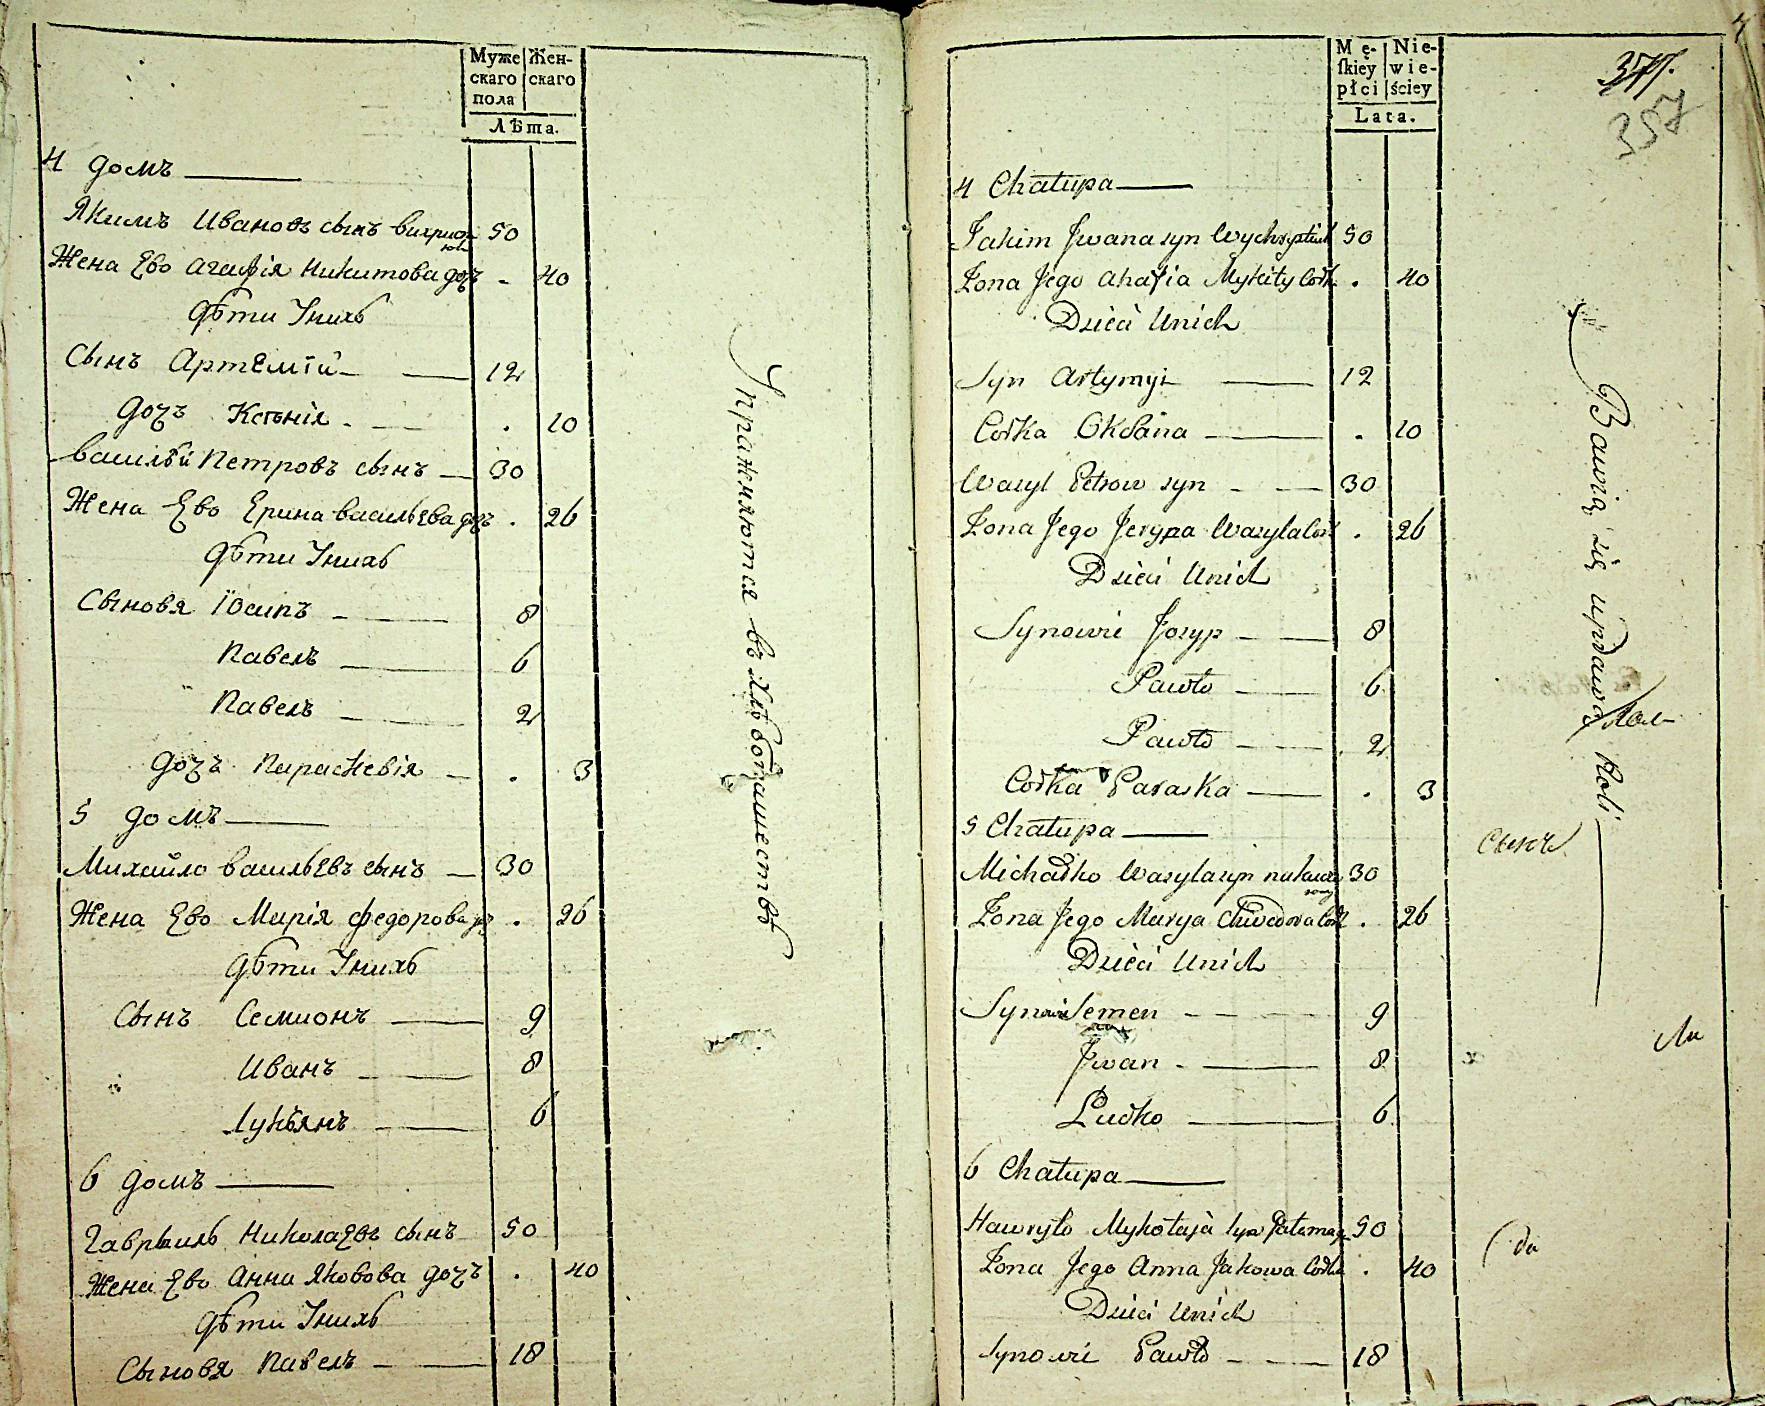 Муже Жен-
скаго скаго
пола
Лѣта.
4 домъ
Якимъ Ивановъ сынъ 50
Жена Ево Агафія Никитова дочъ . 40
Дѣти Унихъ
Сынъ Артемій 12
Дочъ Ксѣнія . 10
Василѣй Петровъ сынъ 30
Жена Ево Ерина Васильева дочъ . 26
Дѣти Унихъ
Сыновя Іосипъ 8
Павелъ 6
Павелъ 2
Дочъ Параскевія . 3
5 домъ
Михайло Васильевъ сынъ 30
Жена Ево Марія Федорова дочъ . 26
Дѣти Унихъ
Сынъ Семионъ 9
Иванъ 8
Лукьянъ 6
6 домъ
Гаврыилъ Николаевъ сынъ 50
Жена Ево Анна Яковова дочъ . 40
Дѣти Унихъ
Сыновя Павелъ 18
Упражняются въ хлѣбопашествѣ
Mę- Nie-
ſkiey wie-
płci ściey
Lata.
357
4 Chałupa
Jakim Jwana syn 50
Żona Jego Ahafia Mykity Corka . 40
Dzieci Unich
Syn Artymyi 12
Corka Oksana . 10
Wasyl Petrow syn 30
Żona Jego Jeryna Wasyla Cor . 26
Dzieci Unich
Synowie Josyp 8
Pawło 6
Pawło 2
Corka Paraska . 3
5 Chałupa
Michałko Wasyla syn 30
Żona Jego Marya Chwedora Cor . 26
Dzieci Unich
Synowie Semen 9
Jwan 8
Lućko 6
6 Chałupa
Hawryło Mykołaja syn 50
Żona Jego Anna Jakowa Corka . 40
Dzieci Unich
Synowie Pawło 18
Bawią się uprawą Roli
сынъ
да